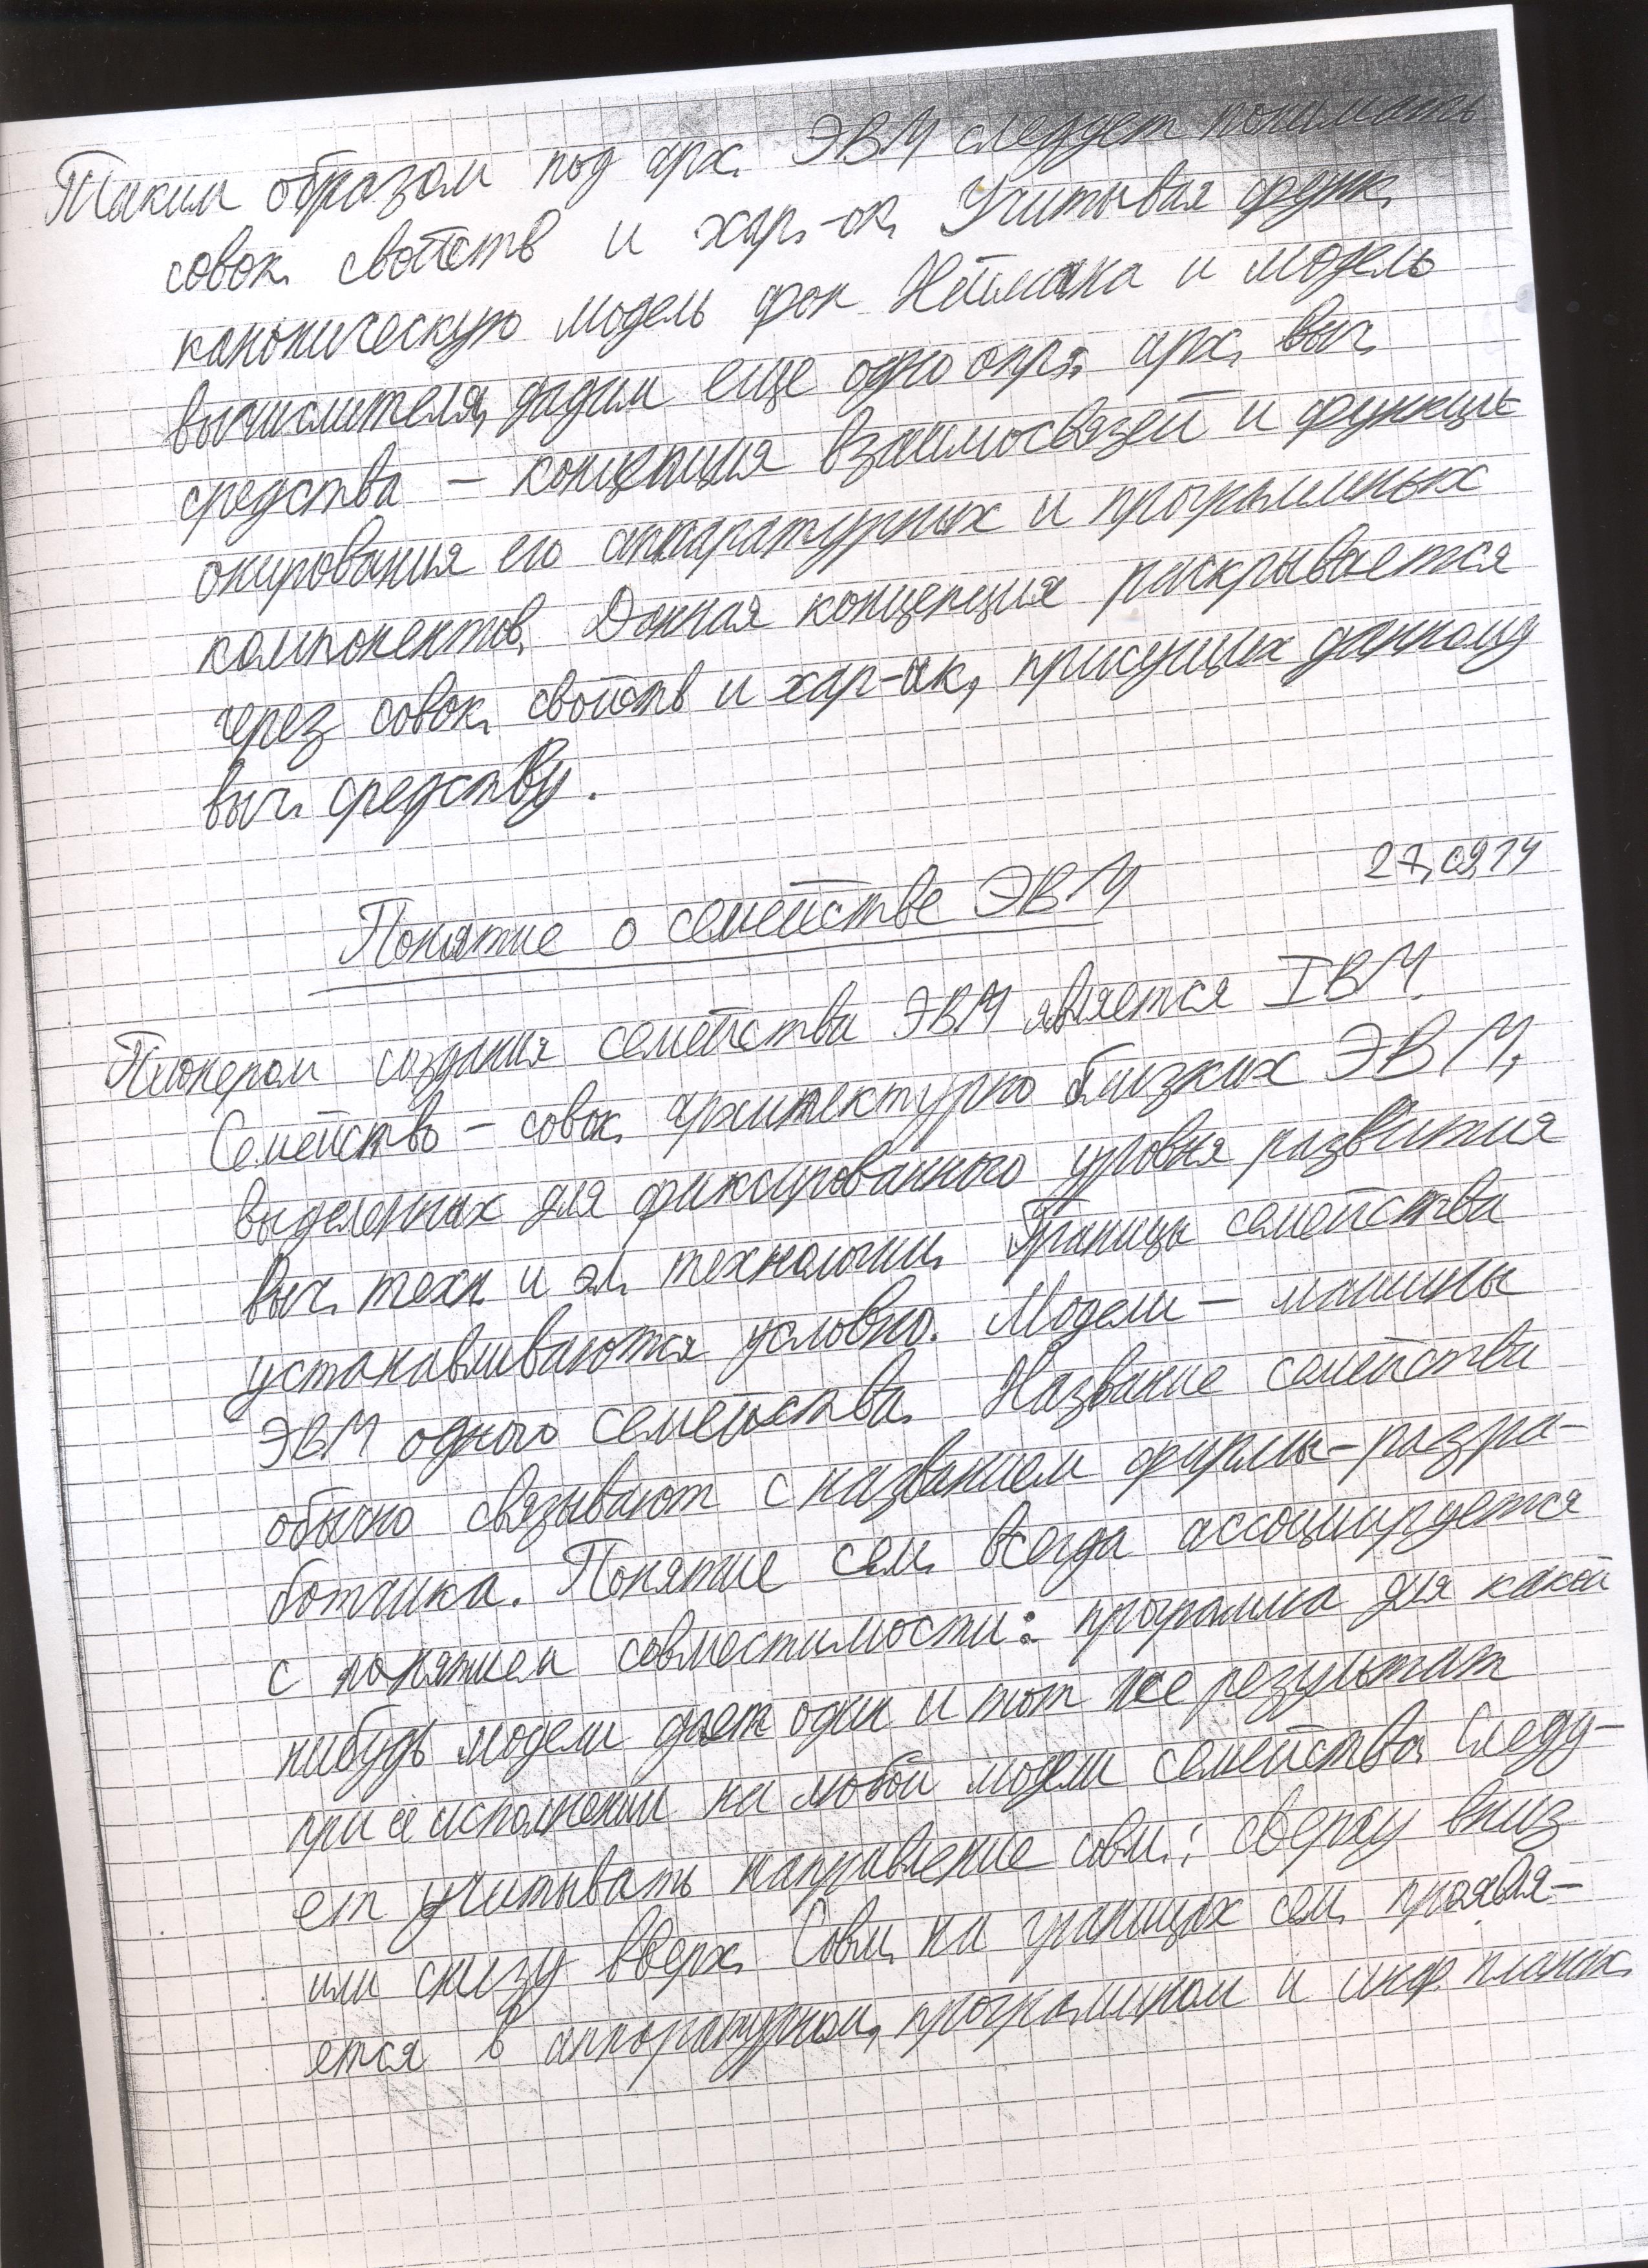 Таким образом под арх. ЭВМ следует понимать
совок. свойств и хар.-ок. Учитывая функ.
каноническую модель фон Неймана и модель
вычислителя, дадим еще одно опр.: арх. выч.
средства – концепция взаимосвязей и функци-
онирования его аппаратурных и програмных
компонентов. Данная концепция раскрывается
через совок. свойств и хар-ик, присущих данному
выч. средству.
27.09.14
Понятие о семействе ЭВМ
Пионером создания семейства ЭВМ является IBM.
Семейство – совок. архитектурно близких ЭВМ,
выделенных для фиксированного уровня развития
выч. техн. и эл. технологии. Границы семейства
устанавливаются условно. Модели – машины
ЭВМ одного семейства. Название семейства
обычно связывают с названием фирмы-разра-
ботчика. Понятие сем. всегда ассоциируется
с понятием совместимости: программа для какой
нибудь модели дает один и тот же результат
при её исполнении на любой модели семейства. Следу-
ет учитывать направление совм.: сверху вниз
или снизу вверх. Совм. на границах сем. проявля-
ется в аппаратурном, програмном и инф. планах.